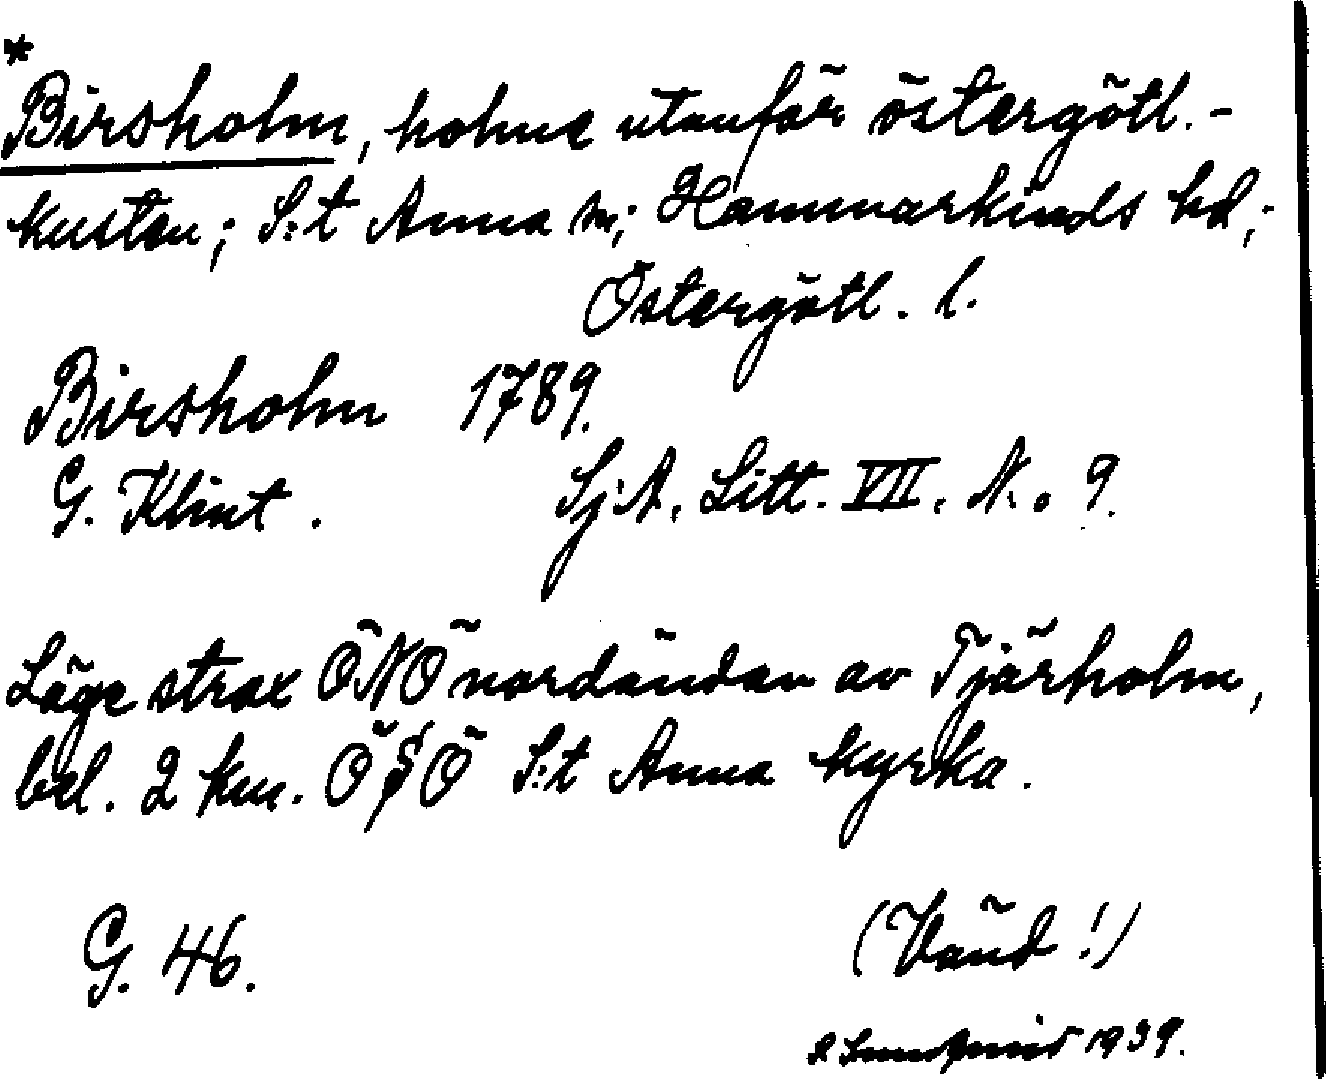 *
Birsholm, holme utanför östergötl.-
kusten; S:t Anna sn; Hammarkinds hd;
Östergötl. l.
Birsholm 1789.
G. Klint. Sj.A. Litt. VII. N:o 9.
Läge strax ÖNÖ nordändan av Tjärholm,
bel. 2 km. ÖSÖ S:t Anna kyrka.
G. 46. (Vänd!)
1939.